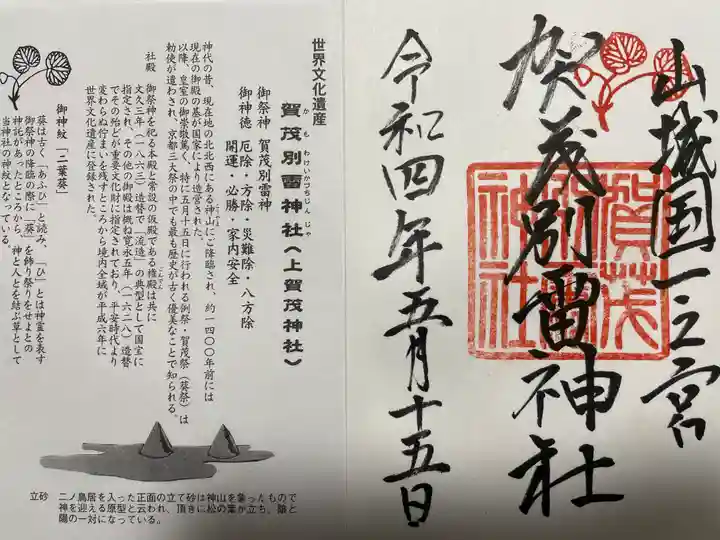 山城国一之宮
賀茂別雷神社
令和四年五月十五日
賀茂
別雷
神社
世界文化遺産
賀茂別雷神社（上賀茂神社）
かもわけいかづちじんじゃ
御祭神 賀茂別雷神
御神徳 厄除・方除・災難除・八方除
開運・必勝・家内安全
神代の昔、現在地の北北西にある神山にご降臨され、約一四〇〇年前には
こうやま
現在の御殿の基が国家により造営された。
以降、皇室の御崇敬篤く、特に五月十五日に行われる例祭・賀茂祭（葵祭）は
勅使が遣わされ、京都三大祭の中でも最も歴史が古く優美なことで知られる。
社殿
御祭神を祀る本殿と常設の仮殿である権殿は共に
ごんでん
文久三年（一八六三）造替で「流造」の典型として国宝に
指定され、その他の御殿は概ね寛永五年（一六二八）造替
でその殆どが重要文化財に指定されており、平安時代より
変わらぬ佇まいを残すところから境内全域が平成六年に
世界文化遺産に登録された。
御神紋「二葉葵」
葵は古く「あふひ」と読み、「ひ」とは神霊を表す
御祭神の降臨の際に「葵」を飾り祭りをせよとの
神託があったところから、神と人とを結ぶ草として
当神社の神紋となっている。
立砂 二ノ鳥居を入った正面の立て砂は神山を象ったもので
神を迎える原型と云われ、頂きに松の葉が立ち、陰と
陽の一対になっている。